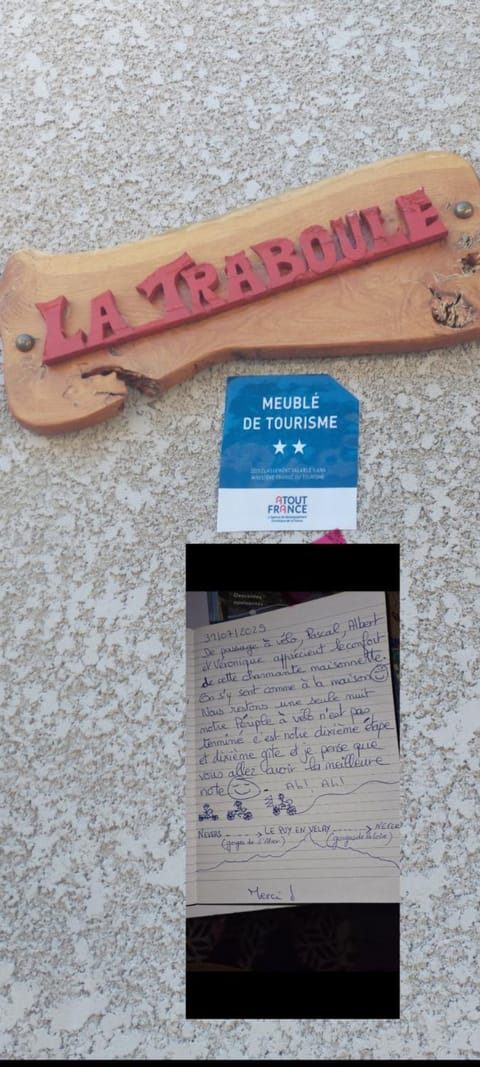 LA TRABOULE
MEUBLÉ
DE TOURISME
ATOUT
FRANCE
31/07/2025
De passage à vélo, Pascal, Albert
et Véronique apprécient le confort
de cette charmante maisonnette.
On s'y sent comme à la maison
Nous restons une seule nuit
notre périple à vélo n'est pas
terminé c'est notre dixième étape
et dixième gîte et je pense que
vous allez avoir la meilleure
note
AL! AL!
NEVERS -----> LE PUY EN VELAY -----> NEVERS
(gorges de l'Allier) (gorges de la Loire)
Merci !